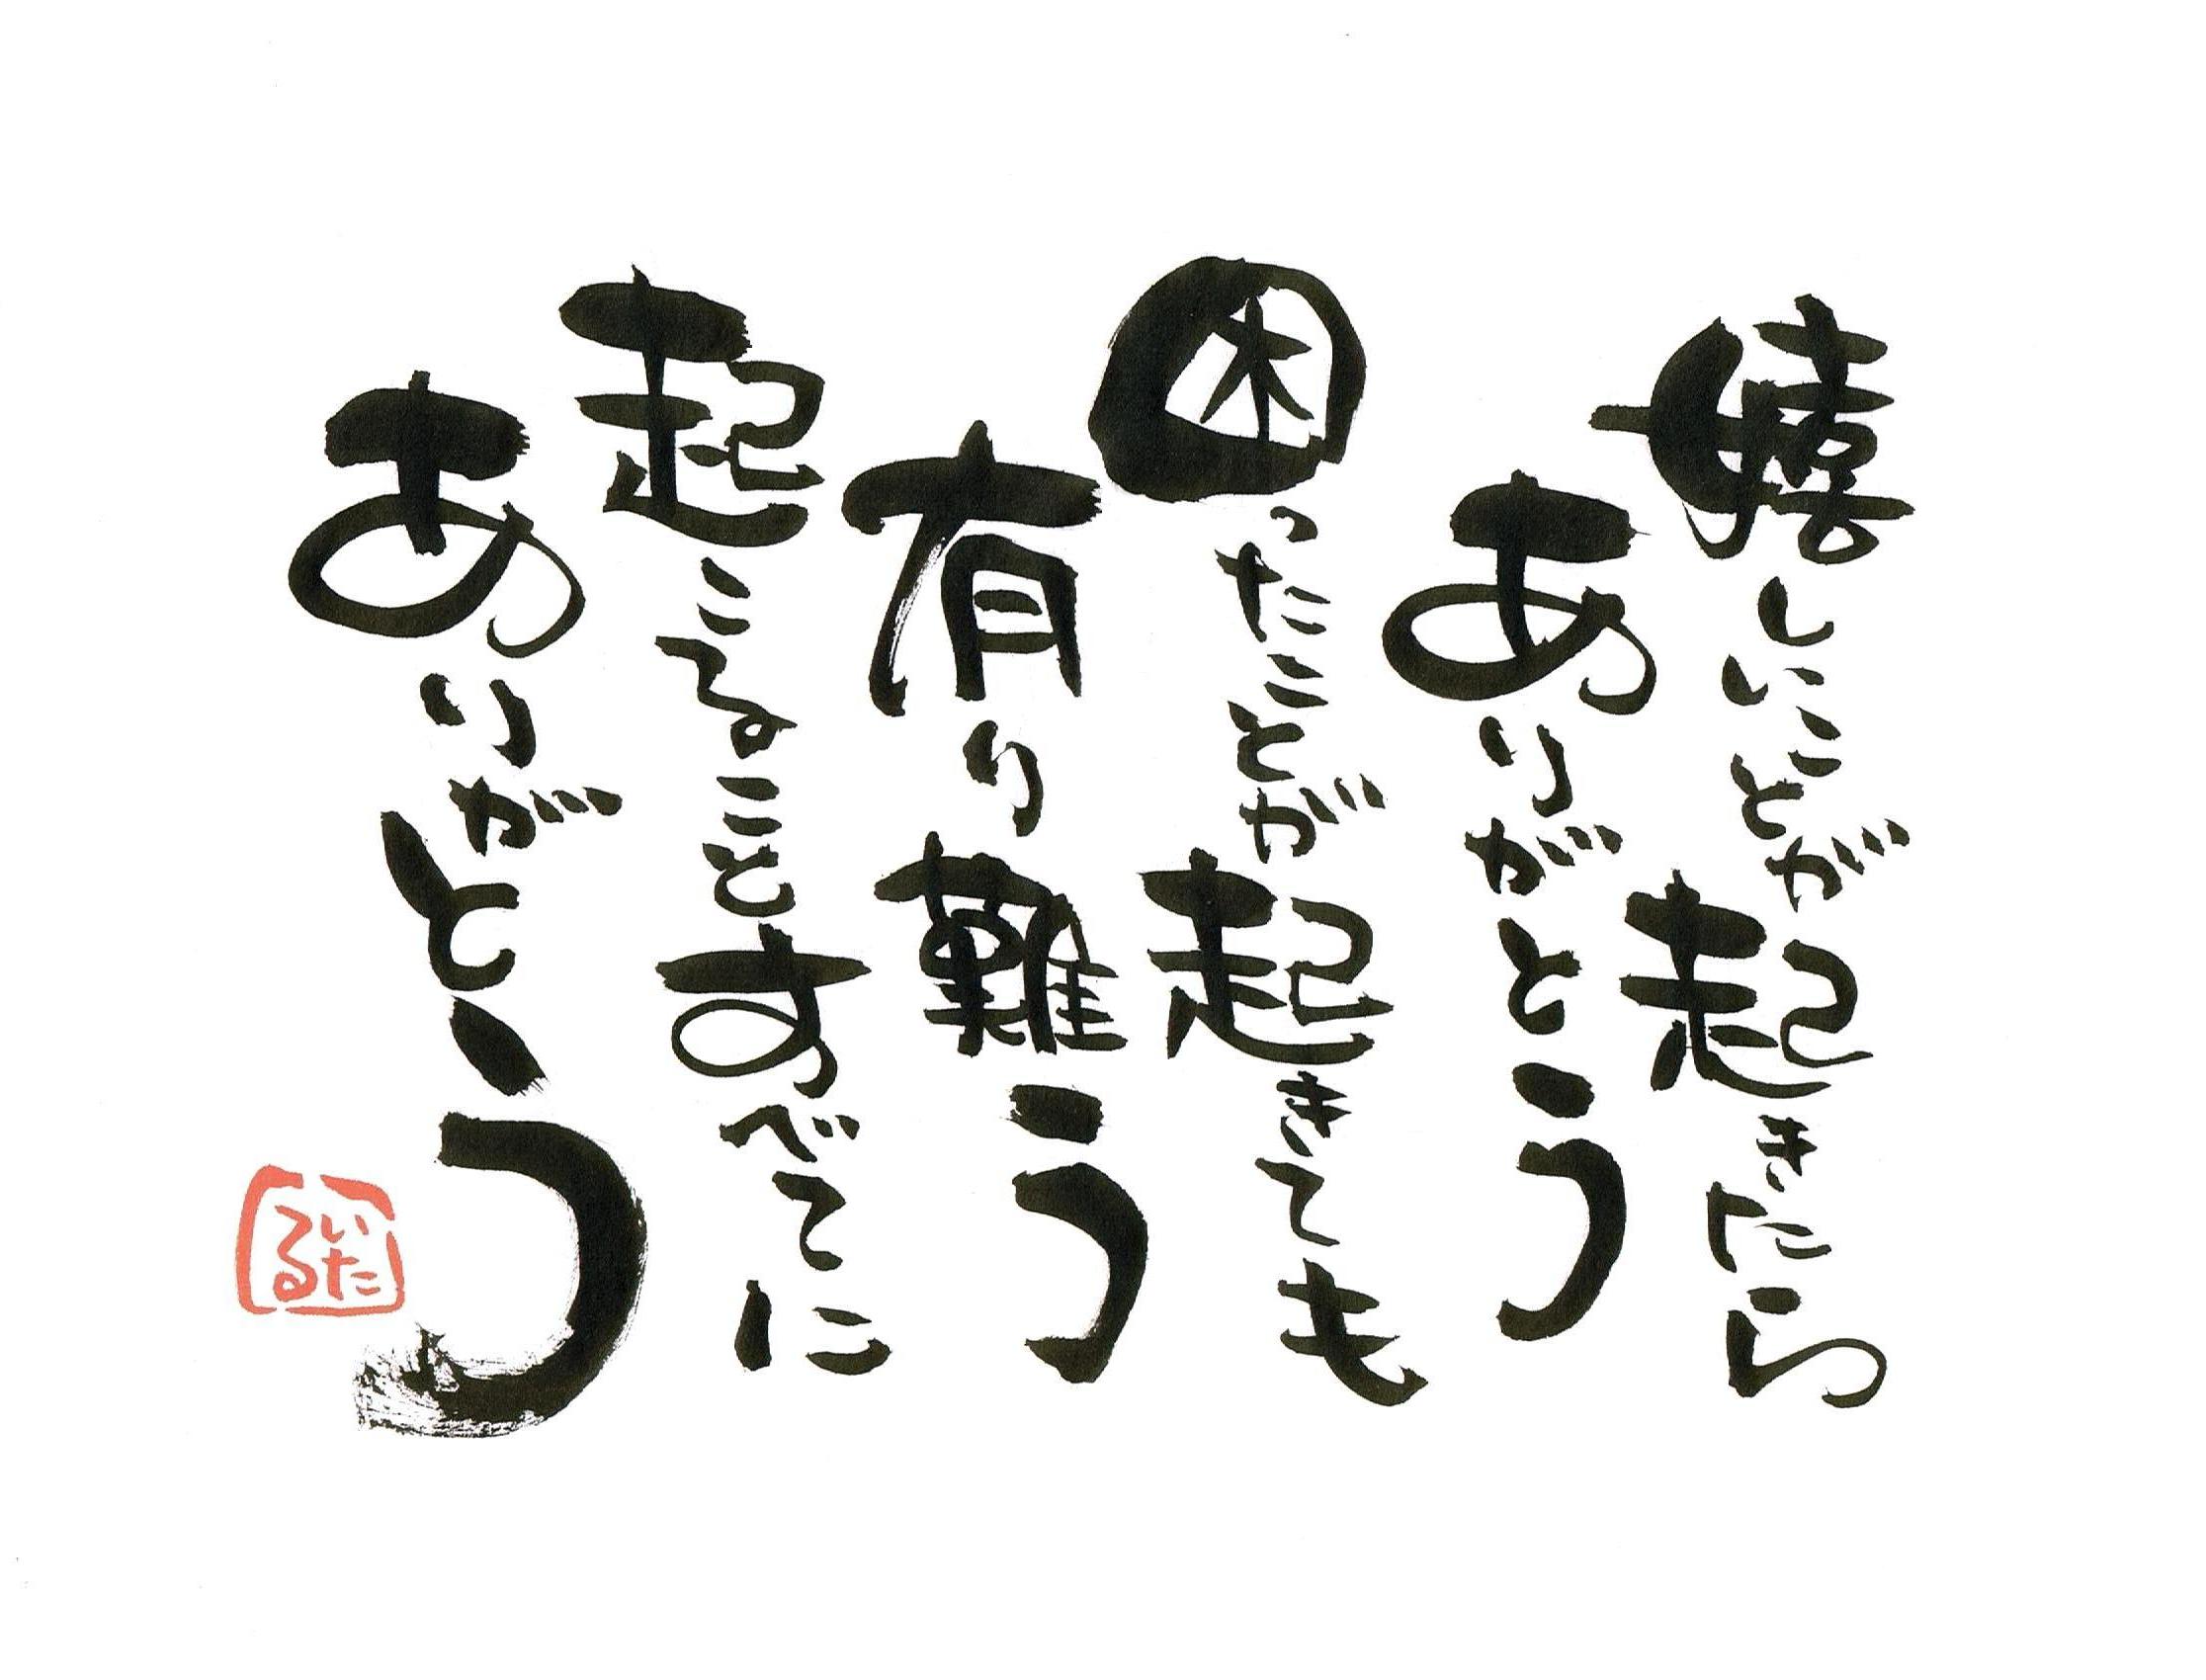 嬉しいことが起きたら
ありがとう
困ったことが起きても
有り難う
起こることすべてに
ありがとう
いたる